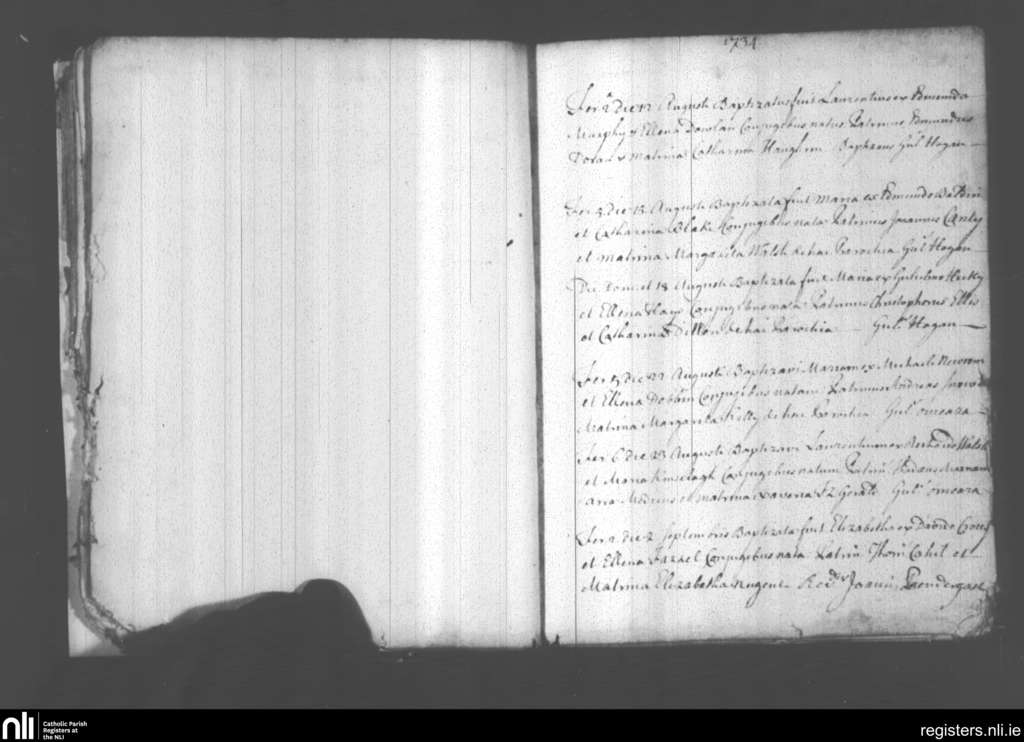 1734
Fer 2ª Die 12 Augusti Baptizatus fuit Laurentius ex Edmundo
Murphy et Ellena Dowlan Conjugibus natus Patrinus Edmundus
Doran et Matrina Catharina Baptizans Gul Hogan
Fer 5 die 15 Augusti Baptizata fuit Maria ex Edmundo
et Catharina Blake Conjugibus nata Patrinus Joannes Canty
et Matrina Margarita Walsh de hac Parochia Gul Hogan
Die Domi et 18 Augusti Baptizata fuit Maria ex Gulielmo
et Ellena Conjugibus nata Patrinus Christophorus Ellis
et Catharina Dillon de hac Parochia Gul Hogan
Fer 5 die 22 Augusti Baptizavi Mariam ex Michaele
et Ellena Dobbin Conjugibus natam Patrinus Andreas
Matrina Margarita Kelly de hac Parochia Gul omeara
Fer 6 die 23 Augusti Baptizavi Laurentium ex Walsh
et Maria Kinselagh Conjugibus natum Patrin
et Matrina Gul omeara
Fer 2 die 2 Septembris Baptizata fuit Elizabetha ex Davide
et Ellena Conjugibus nata Patrin Thom Cahil et
Matrina Elizabetha Nugent Prendergast
nli
Catholic Parish
Registers at
the NLI
registers.nli.ie